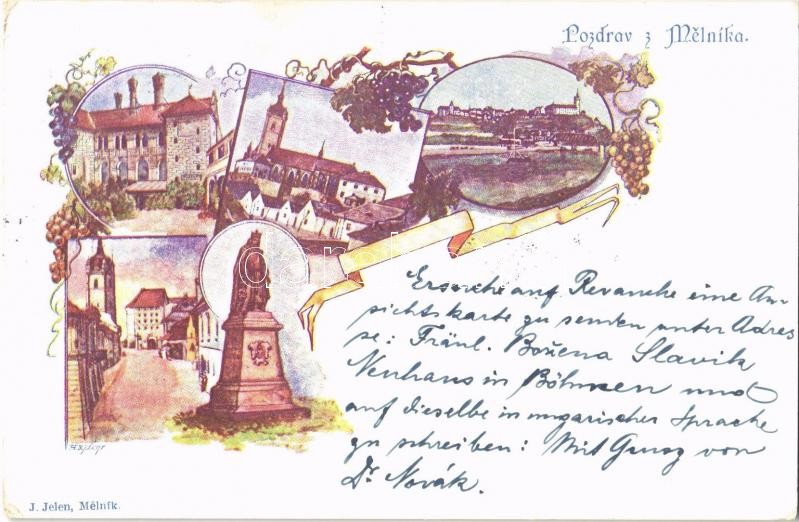 Pozdrav z Mělníka.
Ersuche auf Revanche eine An-
sichtskarte zu senden unter Adres
se: Fräul. Božena Slavik
Neuhaus in Böhmen und
auf dieselbe in ungarischer Sprache
zu schreiben: Mit Gruss von
Dr. Novák.
J. Jelen, Mělník.